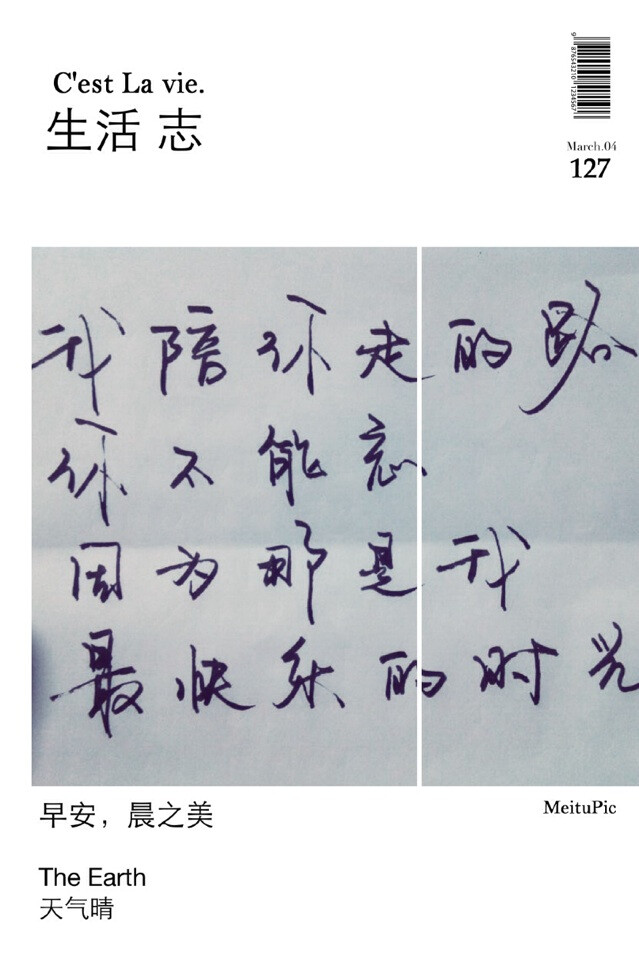 C'est La vie.
生活 志
9 876543210 1234567
March.04
127
我陪你走的路
你不能忘
因为那是我
最快乐的时光
早安，晨之美
MeituPic
The Earth
天气晴